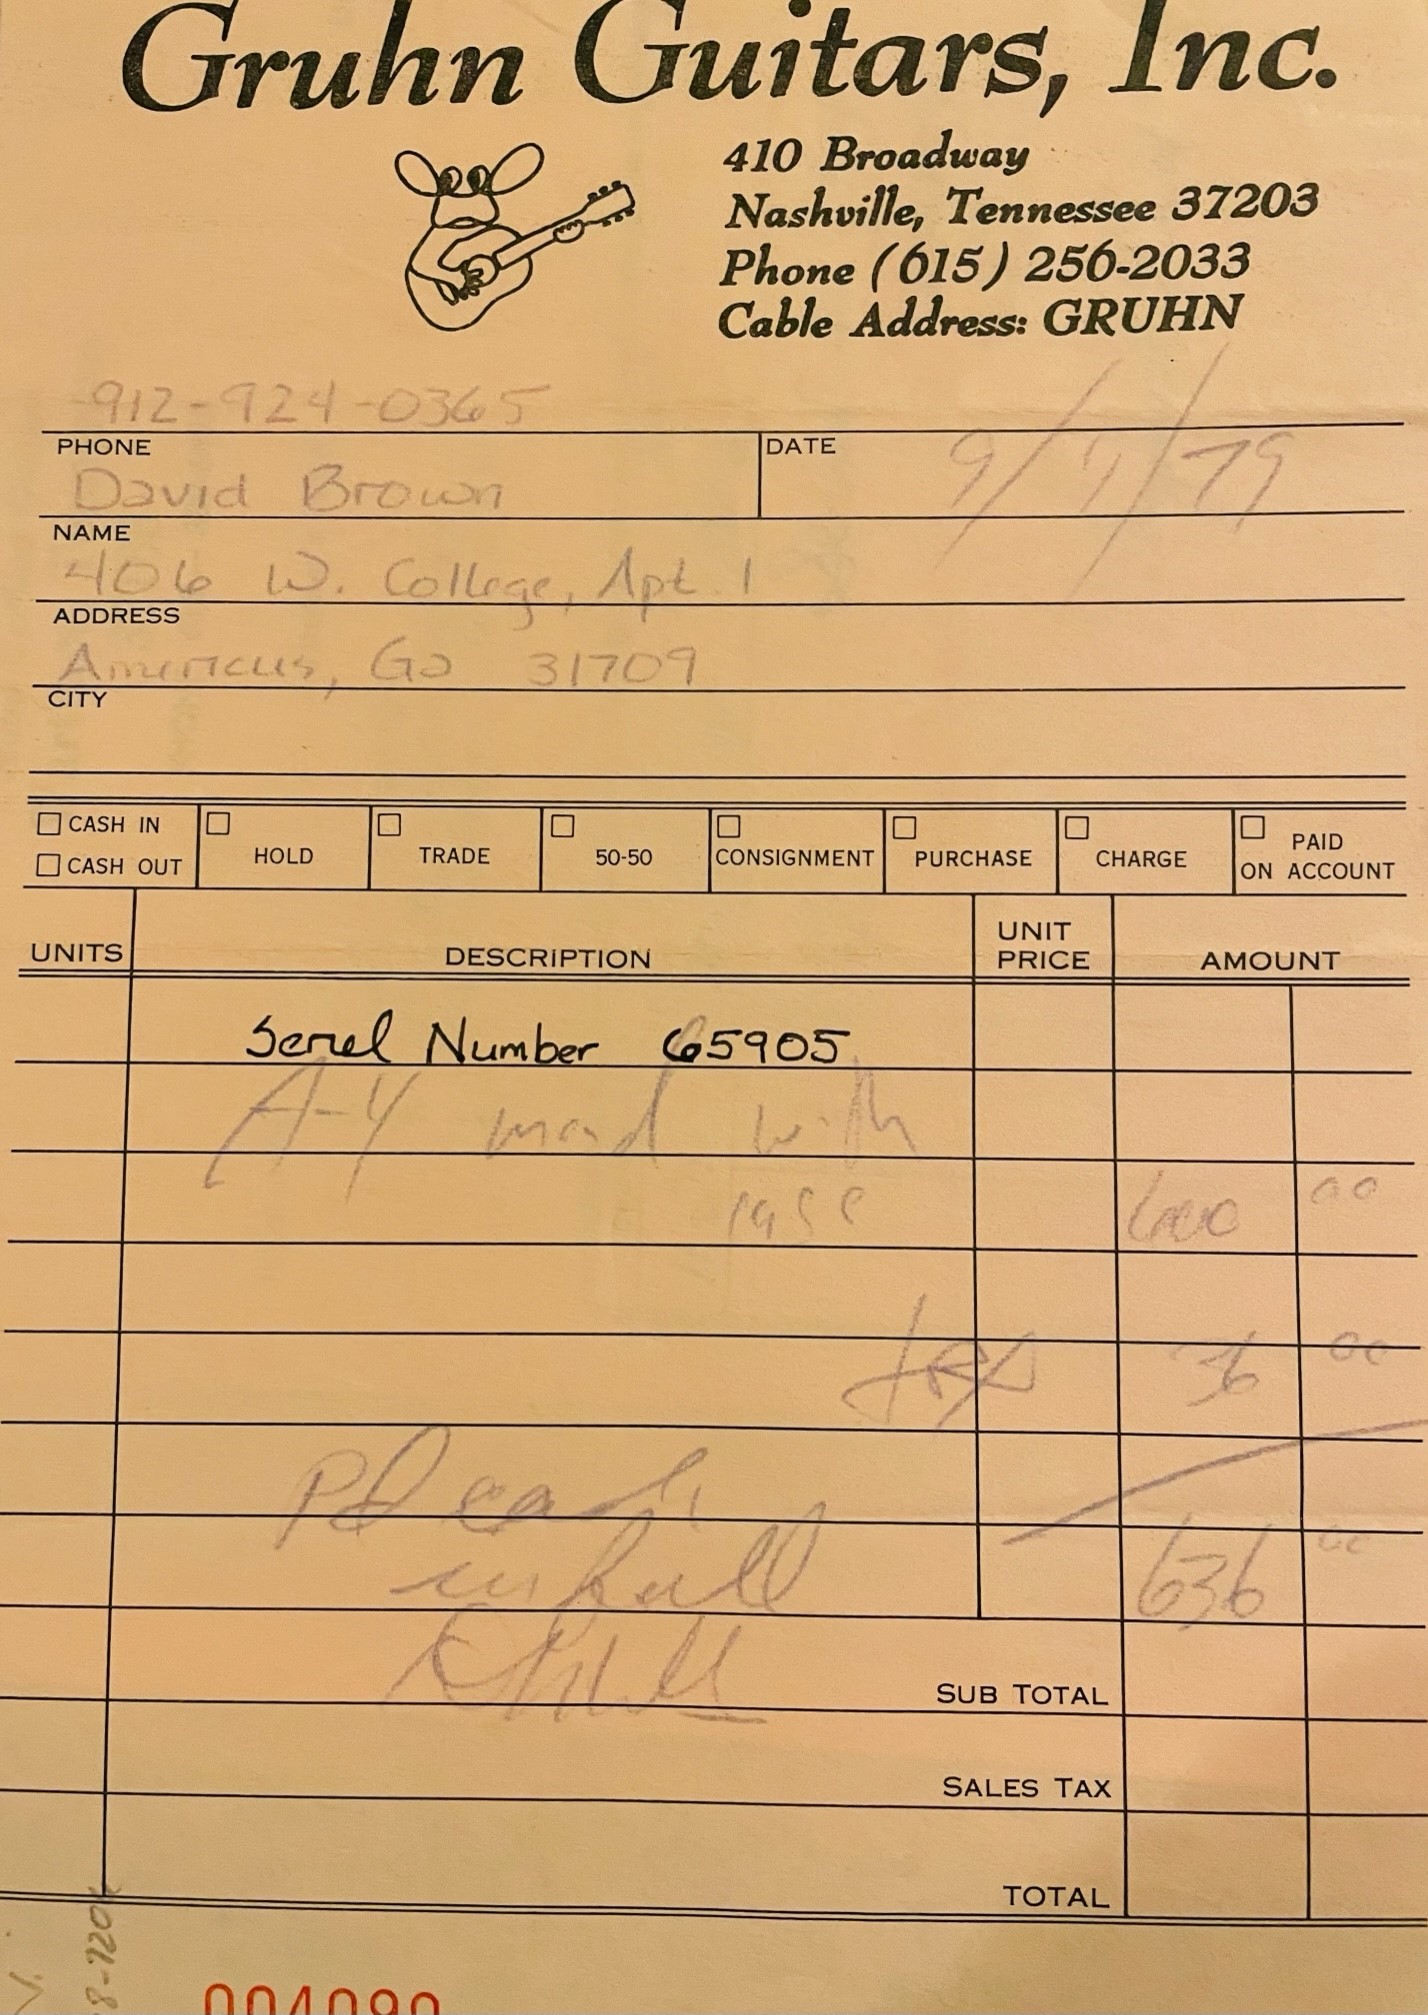 Gruhn Guitars, Inc.
410 Broadway
Nashville, Tennessee 37203
Phone (615) 256-2033
Cable Address: GRUHN
912-924-0365
PHONE
DATE
9/1/79
David Brown
NAME
406 W. College, Apt. 1
ADDRESS
Americus, Ga 31709
CITY
CASH IN
CASH OUT
HOLD
TRADE
50-50
CONSIGNMENT
PURCHASE
CHARGE
PAID
ON ACCOUNT
UNITS
DESCRIPTION
UNIT
PRICE
AMOUNT
Serial Number 65905
A-4 mand with
case 600 00
tax 36 00
Pd cash
in full 636 00
SUB TOTAL
SALES TAX
TOTAL
8-720
004090